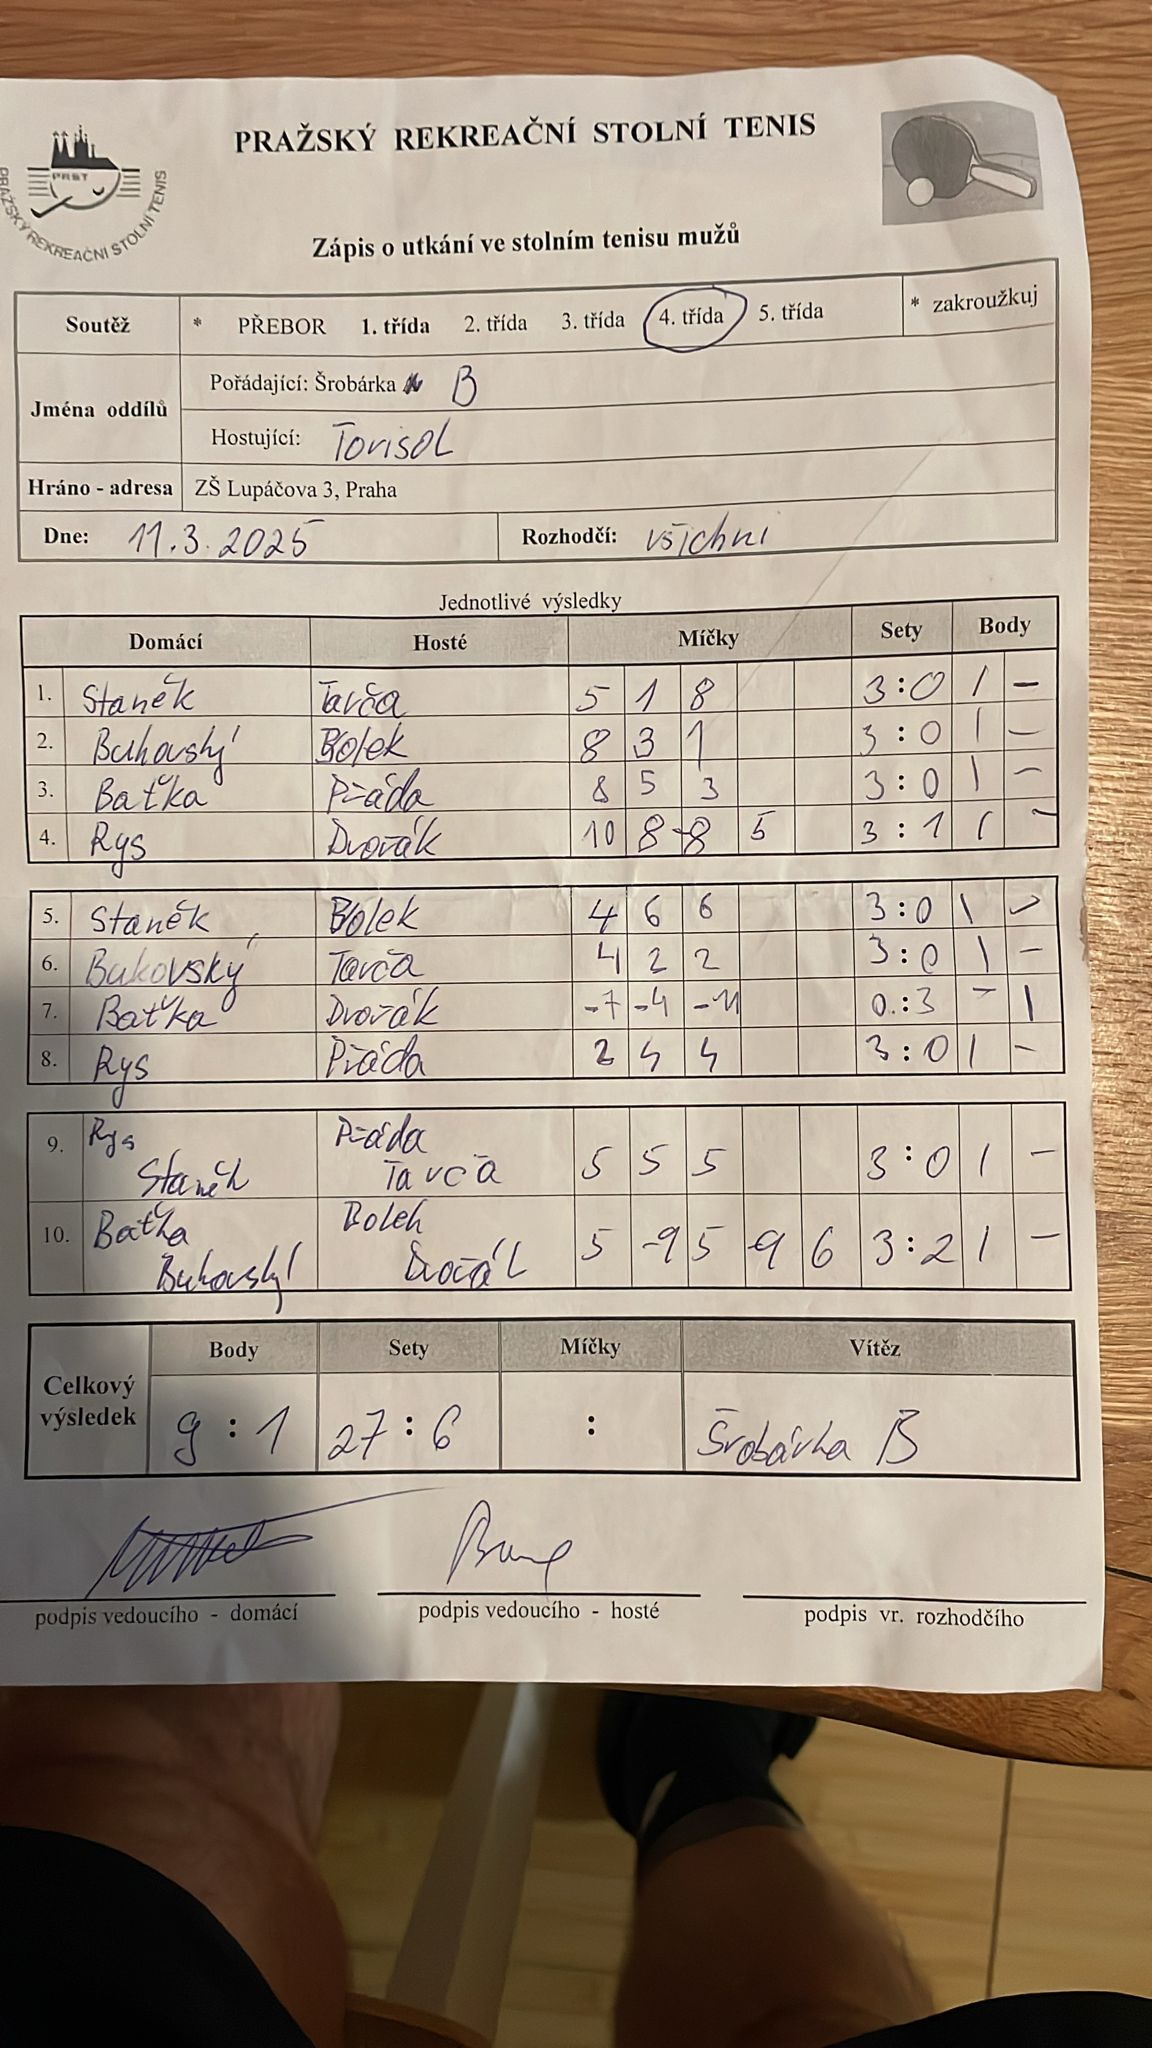 PRAŽSKÝ REKREAČNÍ STOLNÍ TENIS
PRST
PRAŽSKÝ REKREAČNÍ STOLNÍ TENIS
Zápis o utkání ve stolním tenisu mužů
Soutěž * PŘEBOR 1. třída 2. třída 3. třída 4. třída 5. třída * zakroužkuj
Jména oddílů
Pořádající: Šrobárka B
Hostující: Torisol
Hráno - adresa ZŠ Lupáčova 3, Praha
Dne: 11.3.2025 Rozhodčí: všichni
Jednotlivé výsledky
Domácí Hosté Míčky Sety Body
1. Staněk Tarča 5 1 8 3:0 1 -
2. Bukovský Bolek 8 3 1 3:0 1 -
3. Baťka Práda 8 5 3 3:0 1 -
4. Rys Dvořák 10 8 -8 5 3:1 1 -
5. Staněk Bolek 4 6 6 3:0 1 -
6. Bukovský Tarča 4 2 2 3:0 1 -
7. Baťka Dvořák -7 -4 -11 0:3 - 1
8. Rys Práda 2 4 4 3:0 1 -
9. Rys Práda
Staněk Tarča 5 5 5 3:0 1 -
10. Baťka Bolek
Bukovský Dvořák 5 -9 5 -9 6 3:2 1 -
Celkový výsledek
Body Sety Míčky Vítěz
9:1 27:6 : Šrobárka B
podpis vedoucího - domácí podpis vedoucího - hosté podpis vr. rozhodčího